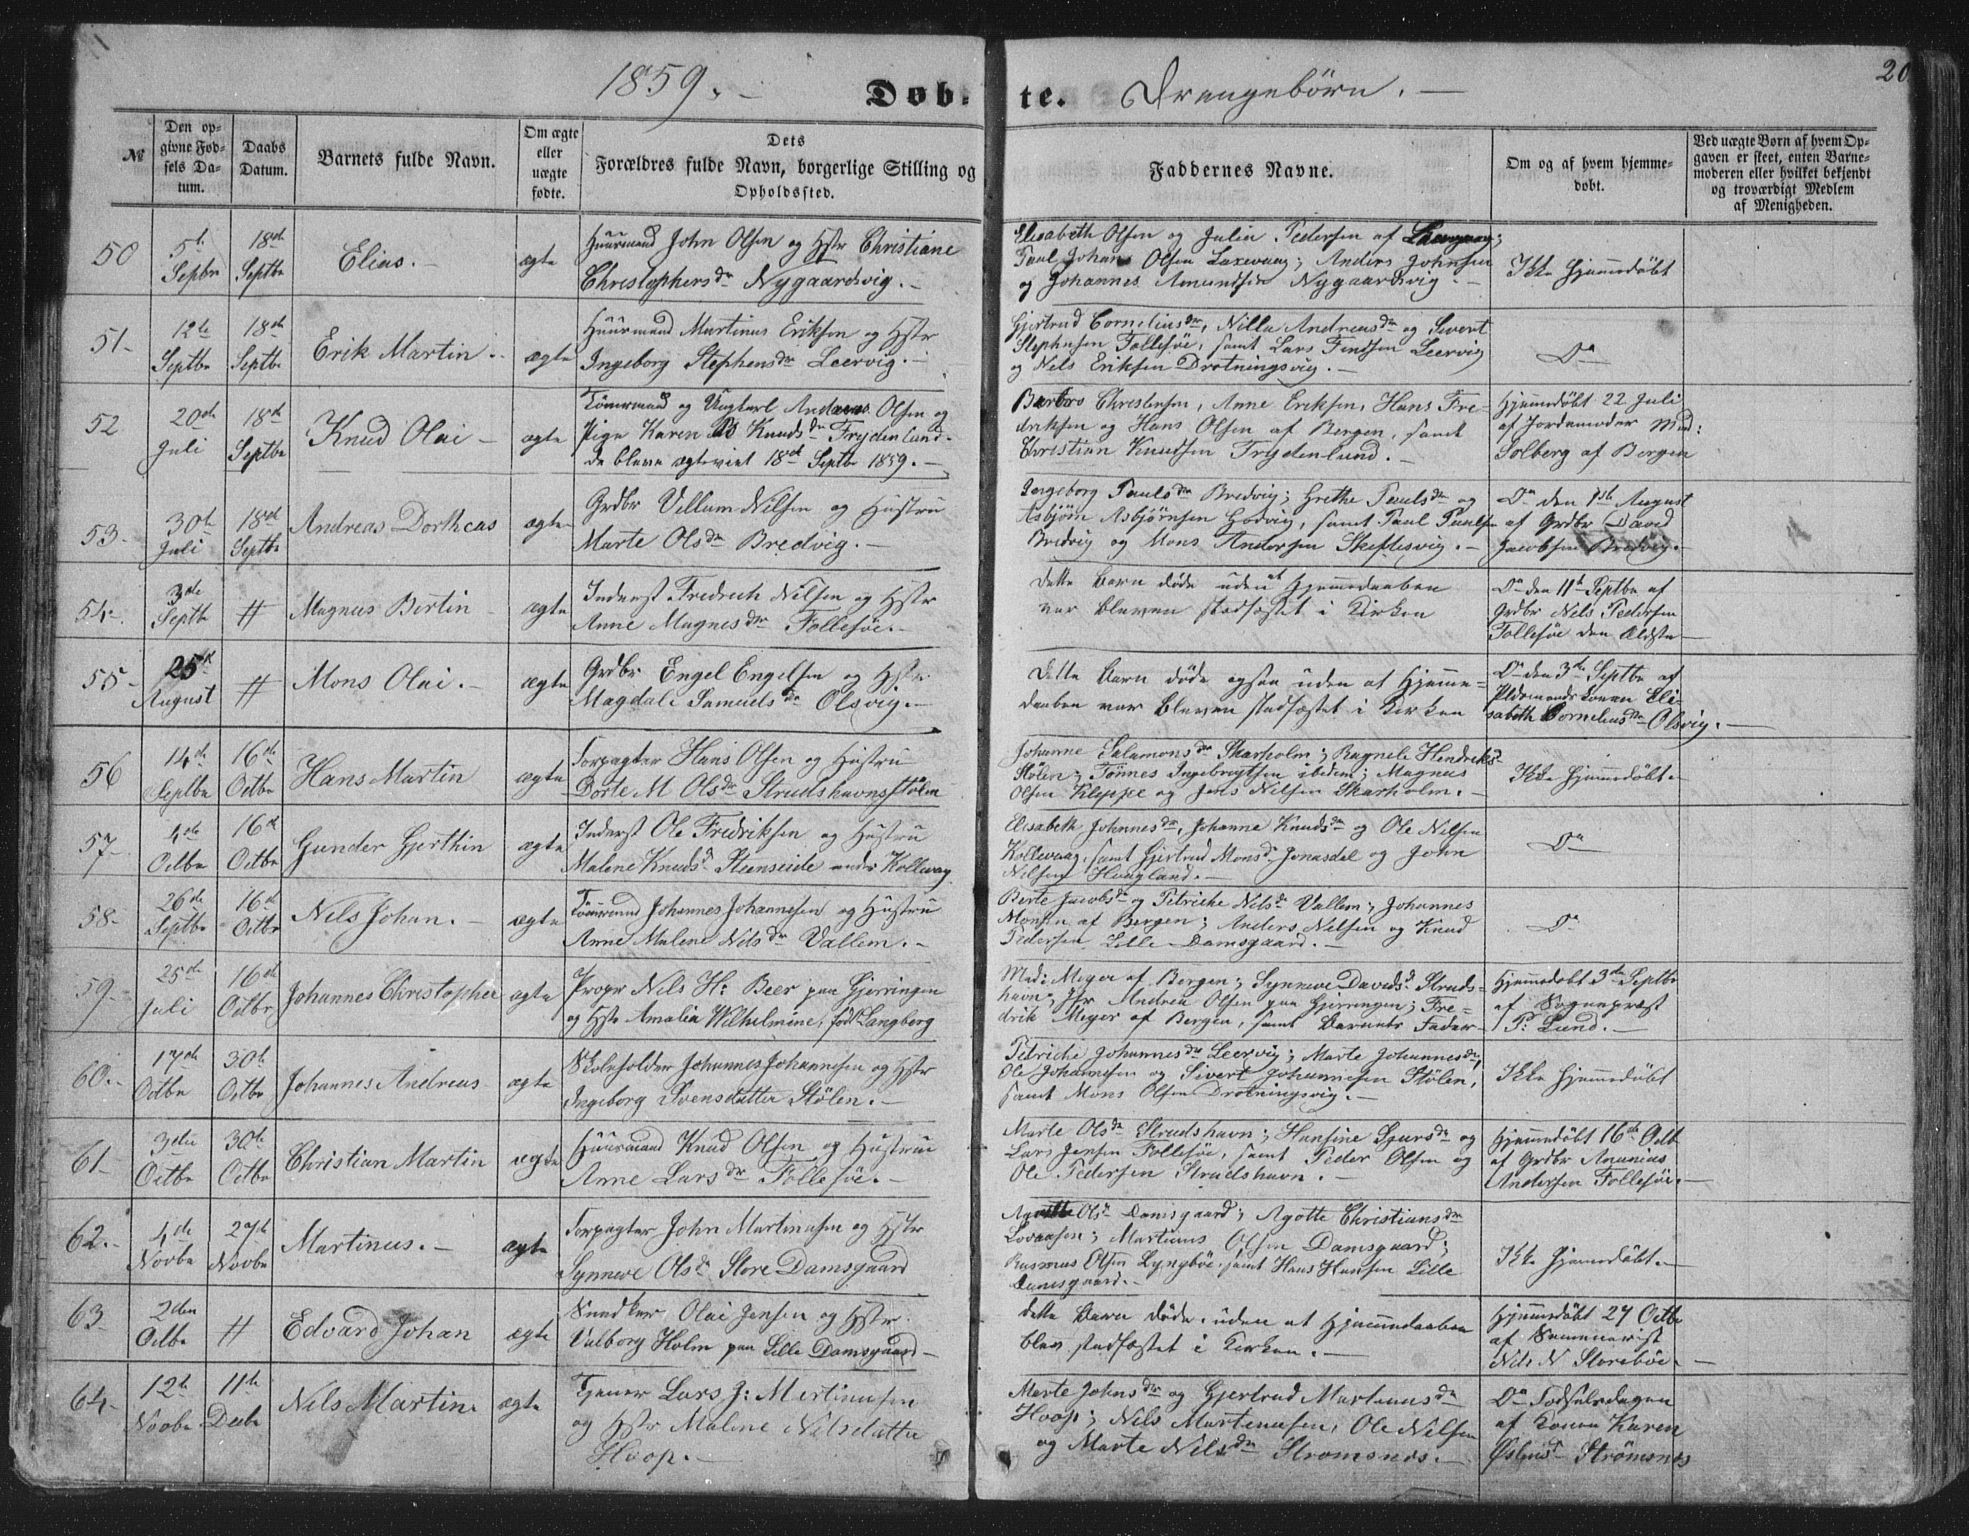 1859. — Døb- te. Drengebørn. —
20
№
Den op-
givne Fød-
sels Da-
tum.
Daabs
Datum.
Barnets fulde Navn.
Om ægte
eller
uægte
fødte.
Dets
Forældres fulde Navn, borgerlige Stilling og
Opholdssted.
Faddernes Navne.
Om og af hvem hjemme-
døbt.
Ved uægte Børn af hvem Op-
gaven er skeet, enten Barne-
moderen eller hvilket bekjendt
og troværdigt Medlem
af Menigheden.
50
5t
Septbr
18de
Septbr
Elias. —
ægte
Huusmand John Olsen og Hstr Christiane
Christophersdr Nygaardsvig. —
Elisabeth Olsen og Julia Pedersen af
Paul Johans Olsen Laxevaag; Anders Johnsen
og Johannes Amundsen Nygaardsvig. —
Ikke Hjemmedøbt
51-
12te
Septbr
18de
Septbr
Erik Martin. -
ægte
Huusmand Martinus Eriksen og Hstr
Ingeborg Stephensdr Leervig. —
Gjertrud Corneliusdr, Nilla Andreasdr og Sivert
Stephensen Follesøe, samt Lars Findsen Leervig
og Nels Eriksen Drotningsvig. —
Do
52
20de
Juli
18de
Septbr
Knud Olai —
ægte
Tømrmand og Ungkarl Andreas Olsen og
Pige Karen Knudsdr Frydenlund.
De bleve ægteviet 18de Septbr 1859. —
Barbro Christensen, Anne Eriksen, Hans Fre-
driksen og Hans Olsen af Bergen, samt
Christian Knudsen Frydenlund. —
Hjemmedøbt 22 Juli
af Jordemoder Mad:
Solberg af Bergen
53-
30te
Juli
18de
Septbr
Andreas Dortheas
ægte
Grdbr Villum Nilsen og Hustru
Marte Olsdr Bredvig. —
Ingeborg Paulsdr Bredvig; Grethe Paulsdr og
Asbjørn Asbjørnsen Godvig, samt Paul Paulsen
Bredvig og Mons Andersen Skeplesvig. —
Do den 7de August
af Grdbr David
Jacobsen Bredvig. —
54-
3de
Septbr
#
Magnus Bertin
ægte
Inderst Fredrich Nilsen og Hstr
Anne Magnesdr Follesøe. —
Dette Barn døde uden at Hjemmedaaben
var bleven stadfæstet i Kirken
Do den 11te Septbr af
Grdbr Nels Pedersen
Follesøe den Ældste
55-
25de
August
#
Mons Olai. —
ægte
Grdbr Engel Engelsen og Hstr
Magdal: Samuelsdr Olsvig. —
Dette Barn døde ogsaa uden at Hjemme-
daaben var bleven stadfæstet i Kirken
Do den 3de Septbr af
Oldermands Konen Eli-
sabeth Corneliusdr Olsvig. —
56
14de
Septbr
16de
Octbr
Hans Martin
ægte
Forpagter Hans Olsen og Hustru
Dorte M Olsdr Strudshavns Stølen
Johanne Salamonsdr Skarholm; Ragnele Hendriksdr
Stølen; Tønnes Ingebrigtsen ibidem; Magnus
Olsen Kleppe og Jens Nilsen Skarholm. —
Ikke Hjemmedøbt -
57-
4de
Octbr
16de
Octbr
Gunder Gjerthin
ægte
Inderst Ole Fredriksen og Hustru
Malene Knudsdr Steenseide under Kollevaag
Elisabeth Johnnesdr, Johanne Knudsdr og Ole Nilsen
Kollevaag, samt Gjertrud Monsdr Jonasdal og John
Nilsen Haagland. —
Do
58-
26de
Septbr
16de
Octbr
Nels Johan. —
ægte
Tømrmand Johannes Johannesen og Hustru
Anne Malene Nilsdr Vallem. —
Berte Jacobsdr og Petriche Nilsdr Vallem; Johannes
Monsen af Bergen; Anders Nilsen og Knud
Pedersen Lille Damsgaard. —
Do
59-
25de
Juli
16de
Octbr
Johannes Christopher
ægte
Propr Nils H: Beer paa Gjerringen
og Hstr Amalia Wilhelmine, født Langberg
Mad: Meyer af Bergen; Synneve Davidsdr Struds-
havn; Hr Andrea Olsen paa Gjerringen; Fre-
drik Meyer af Bergen, samt Barnets Fader -
Hjemmedøbt 3de Septbr
af Sognepræst
P: Lund. —
60.-
17de
Octbr
30te
Octbr
Johannes Andreas
ægte
Skoleholder Johannes Johannesen og Hstr
Ingeborg Svensdatter Stølen. —
Petriche Johannesdr Leervig; Marte Johannesdr,
Ole Johannesen og Sivert Johannesen Stølen,
samt Mons Olsen Drotningsvig. —
Ikke Hjemmedøbt
61-
3die
Octbr
30te
Octbr
Christian Martin
ægte
Huusmand Knud Olsen og Hustru
Anne Larsdr Follesøe. —
Marte Olsdr Strudshavn; Hansine Sjursdr og
Lars Jensen Follesøe, samt Peder Olsen og
Ole Pedersen Strudshavn. —
Hjemmedøbt 16de Octb
af Grdbr Ananias
Andersen Follesøe. —
62.-
4de
Novbr
27de
Novbr
Martinus. —
ægte
Forpagter John Martinusen og Hstr
Synneve Olsdr Store Damsgaard
Olsdr Damsgaard; Agotte Christiansdr
Lovaasen; Martinus Olsen Damsgaard;
Rasmus Olsen Lyngbøe, samt Hans Hansen Lille
Damsgaard. —
Ikke Hjemmedøbt. —
63-
2den
Octbr
#
Edvard Johan
ægte
Snedker Olai Jensen og Hstr
Valborg Holm paa Lille Damsgaard —
Dette Barn døde, uden at Hjemmedaaben
blev stadfæstet i Kirken. —
Hjemmedøbt 27 Octbr
af Seminarist
Nils N Storebøe. —
64-
12te
Novbr
11te
Decbr
Nils Martin
ægte
Tjener Lars J: Martinusen
og Hstr Malene Nilsdatter
Hoop. —
Marte Johnsdr og Gjertrud Martinusdr
Hoop; Nils Martinusen, Ole Nilsen
og Marte Nilsdr Strømsnes. —
Do Fødselsdagen
af Konen Karen
Strömsnes